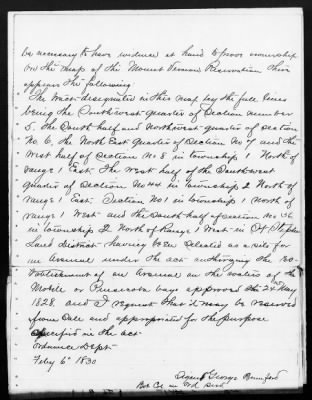 be necessary to have evidence at hand to prove ownership
On the Map of the Mount Vernon Reservation their
appears the following
The tract designated in this map by the full lines
being the Southwest quarter of Section number
5. The South half and Northwest quarter of Section
No. 6, the North East quarter of Section No 7 and the
West half of Section No 8 in township 1 North of
range 1 East. The West half of the Southwest
quarter of Section No 44 in township 2 North of
range 1 East. Section No 1 in township 1 North of
range 1 West and the South half of section No 36
in township 2 North of Range 1 West in St Stephens
Land district having been selected as a site for
an Arsenal under the act authorizing the es-
tablishment of an Arsenal on the waters of the
Mobile or Pensacola bays approved the 24th May
1828. and I request that it may be reserved
from sale and appropriated for the purpose
specified in the act
Ordnance Dept.
Feby 6th 1830
Signed George Bomford
Bvt Col on Ord Serv